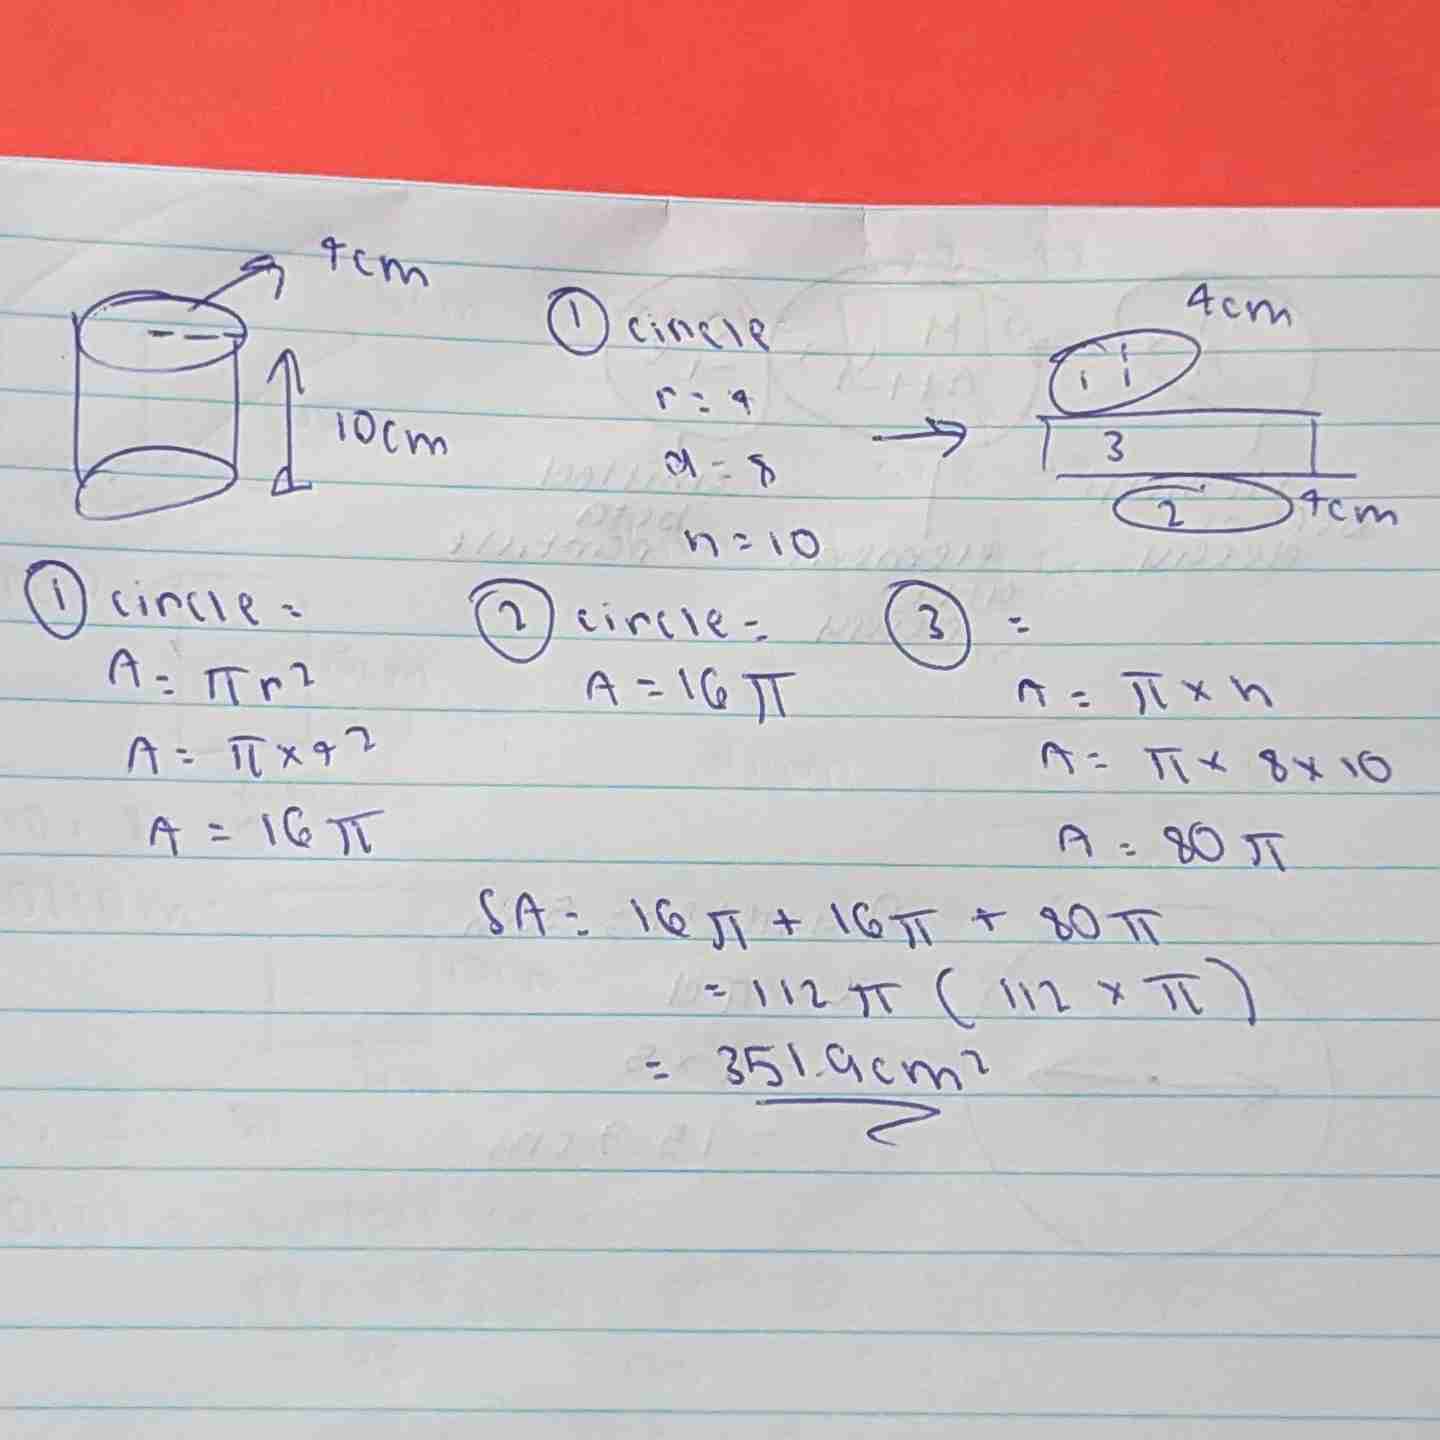 4cm
10cm
① circle
r = 4
d = 8
h = 10
4cm
1
3
2
4cm
① circle =
A = πr²
A = π × 4²
A = 16π
② circle =
A = 16π
③ =
A = π × h
A = π × 8 × 10
A = 80π
SA = 16π + 16π + 80π
= 112π (112 × π)
= 351.9cm²